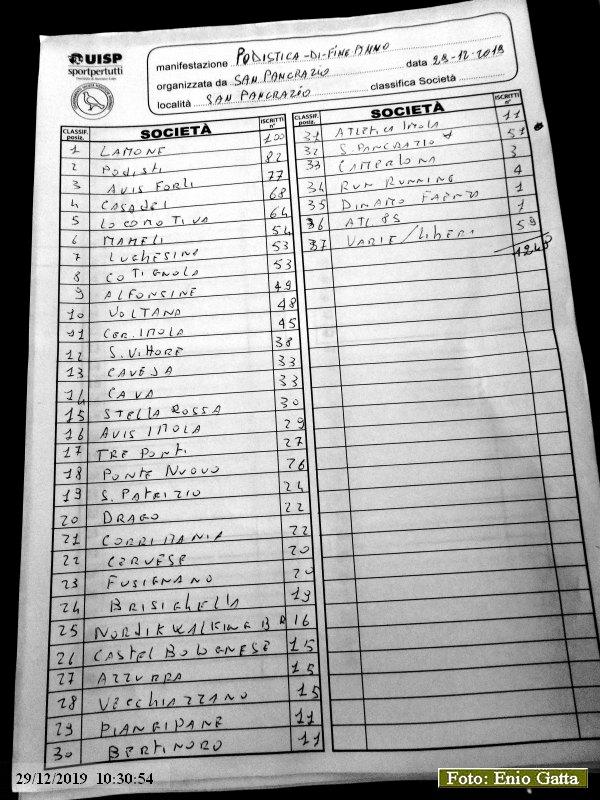 UISP
sportpertutti
manifestazione PODISTICA-DI-FINE ANNO
organizzata da SAN PANCRAZIO data 29-12-2019
località SAN PANCRAZIO classifica Società
CLASSIF. posiz. SOCIETÀ ISCRITTI n°
1 LAMONE 100
2 PODISTI 82
3 AVIS FORLI 77
4 CASADEI 68
5 LOCOMOTIVA 64
6 MAMELI 54
7 LUGHESINA 53
8 COTIGNOLA 53
9 ALFONSINE 49
10 VOLTANA 48
11 CER. IMOLA 45
12 S. VITTORE 38
13 CAVEJA 33
14 CAVA 33
15 STELLA ROSSA 30
16 AVIS IMOLA 29
17 TRE PONTI 27
18 PONTE NUOVO 26
19 S. PATRIZIO 24
20 DRAGO 22
21 CORRIMANIA 22
22 CERVESE 20
23 FUSIGNANO 20
24 BRISIGHELLA 19
25 NORDIK WALKING BR 16
26 CASTEL BOLOGNESE 15
27 AZZURRA 15
28 VECCHIAZZANO 15
29 PIANGIPANE 11
30 BERTINORO 11
CLASSIF. posiz. SOCIETÀ ISCRITTI n°
31 ATLETICA IMOLA 11
32 S. PANCRAZIO 51
33 CAMERLONA 3
34 RUN RUNNING 4
35 DINAMO FAENZA 1
36 ATL. 85 1
37 VARIE/LIBERI 59
1248
29/12/2019 10:30:54
Foto: Enio Gatta